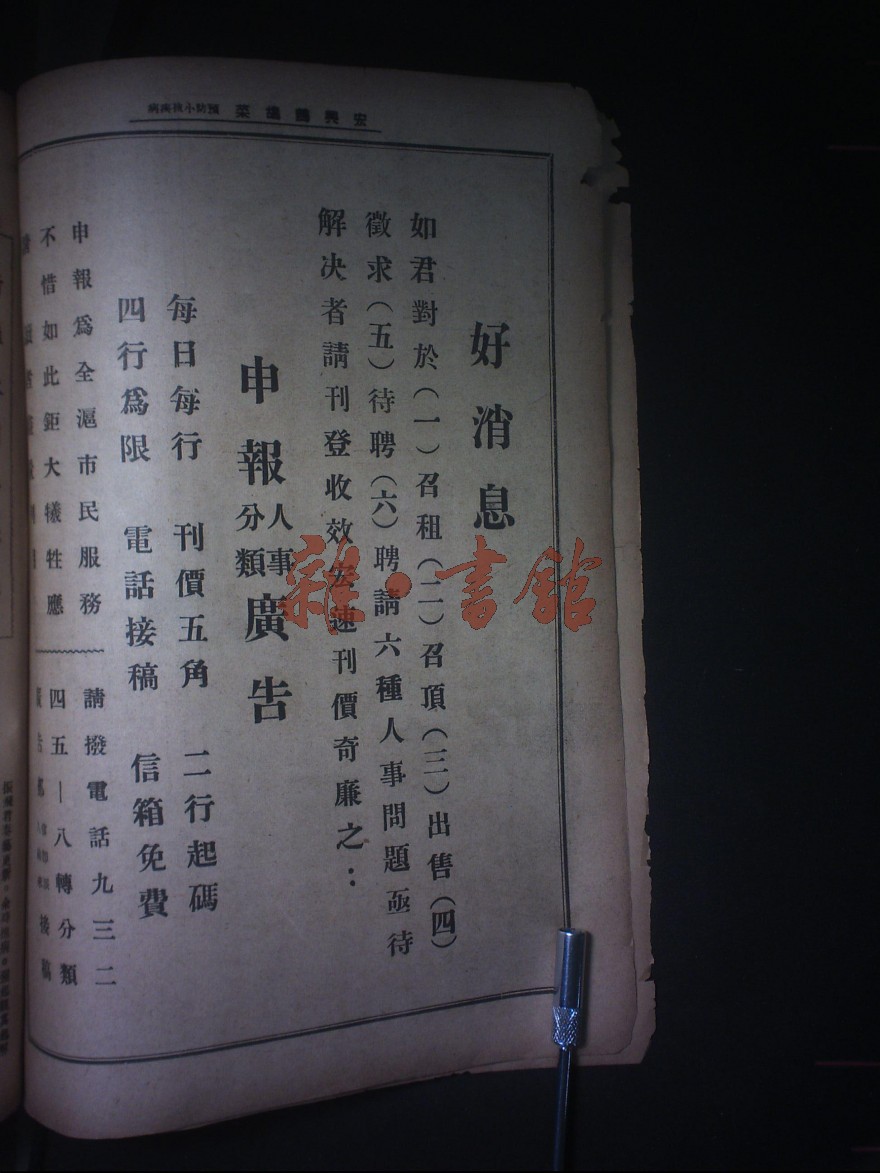 宏興鷓鴣菜 預防小孩疾病
好消息
如君對於(一)召租(二)召頂(三)出售(四)
徵求(五)待聘(六)聘請六種人事問題亟待
解决者請刊登收效宏速刊價奇廉之:
申報人事分類廣告
每日每行 刊價五角 二行起碼
四行爲限 電話接稿 信箱免費
申報爲全滬市民服務
不惜如此鉅大犧牲應
請撥電話九三二
四五一八轉分類
接稿
雜·書館